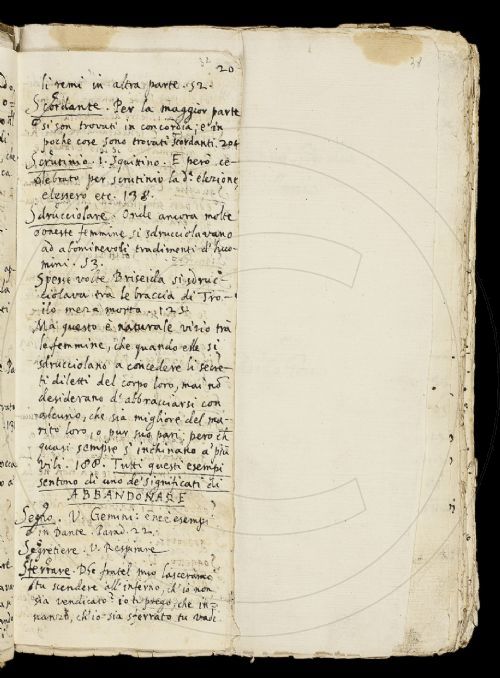 32
20
38
li remi in altra parte. 52.
Scordante. Per la maggior parte
si son trovati in concordia; e in
poche cose sono trovati scordanti. 204
Scrutinio. i. Squitino. E però ce-
lebrato per scrutinio la d.ª elezione
elessero etc. 138.
Sdrucciolare. Onde ancora molte
oneste femmine si sdrucciolavano
ad abominevoli tradimenti d'huo-
mini. 53.
Spesse volte Briseida si sdruc-
ciolava tra le braccia di Tro-
ilo meza morta. 125.
Ma questo è naturale vizio trà
le femmine, che quando elle si
sdrucciolano a concedere li secre-
ti diletti del corpo loro, mai nō
desiderano d'abbracciarsi con
alcuno, che sia migliore del ma-
rito loro, o pur suo pari; però ch̄
quasi sempre s'inchinano a' più
vili. 188. Tutti questi esempi
sentono di uno de' significati di
ABBANDONARE
Segno. V. Gemini: e n'è esempi
in Dante. Parad. 22.
Segretiere. V. Respinare
Sferrare. Dhe fratel mio lascerame
tu scendere all'inferno, ch'io non
sia vendicato? io ti prego, che in-
nanzi, ch'io sia sferrato tu vadi